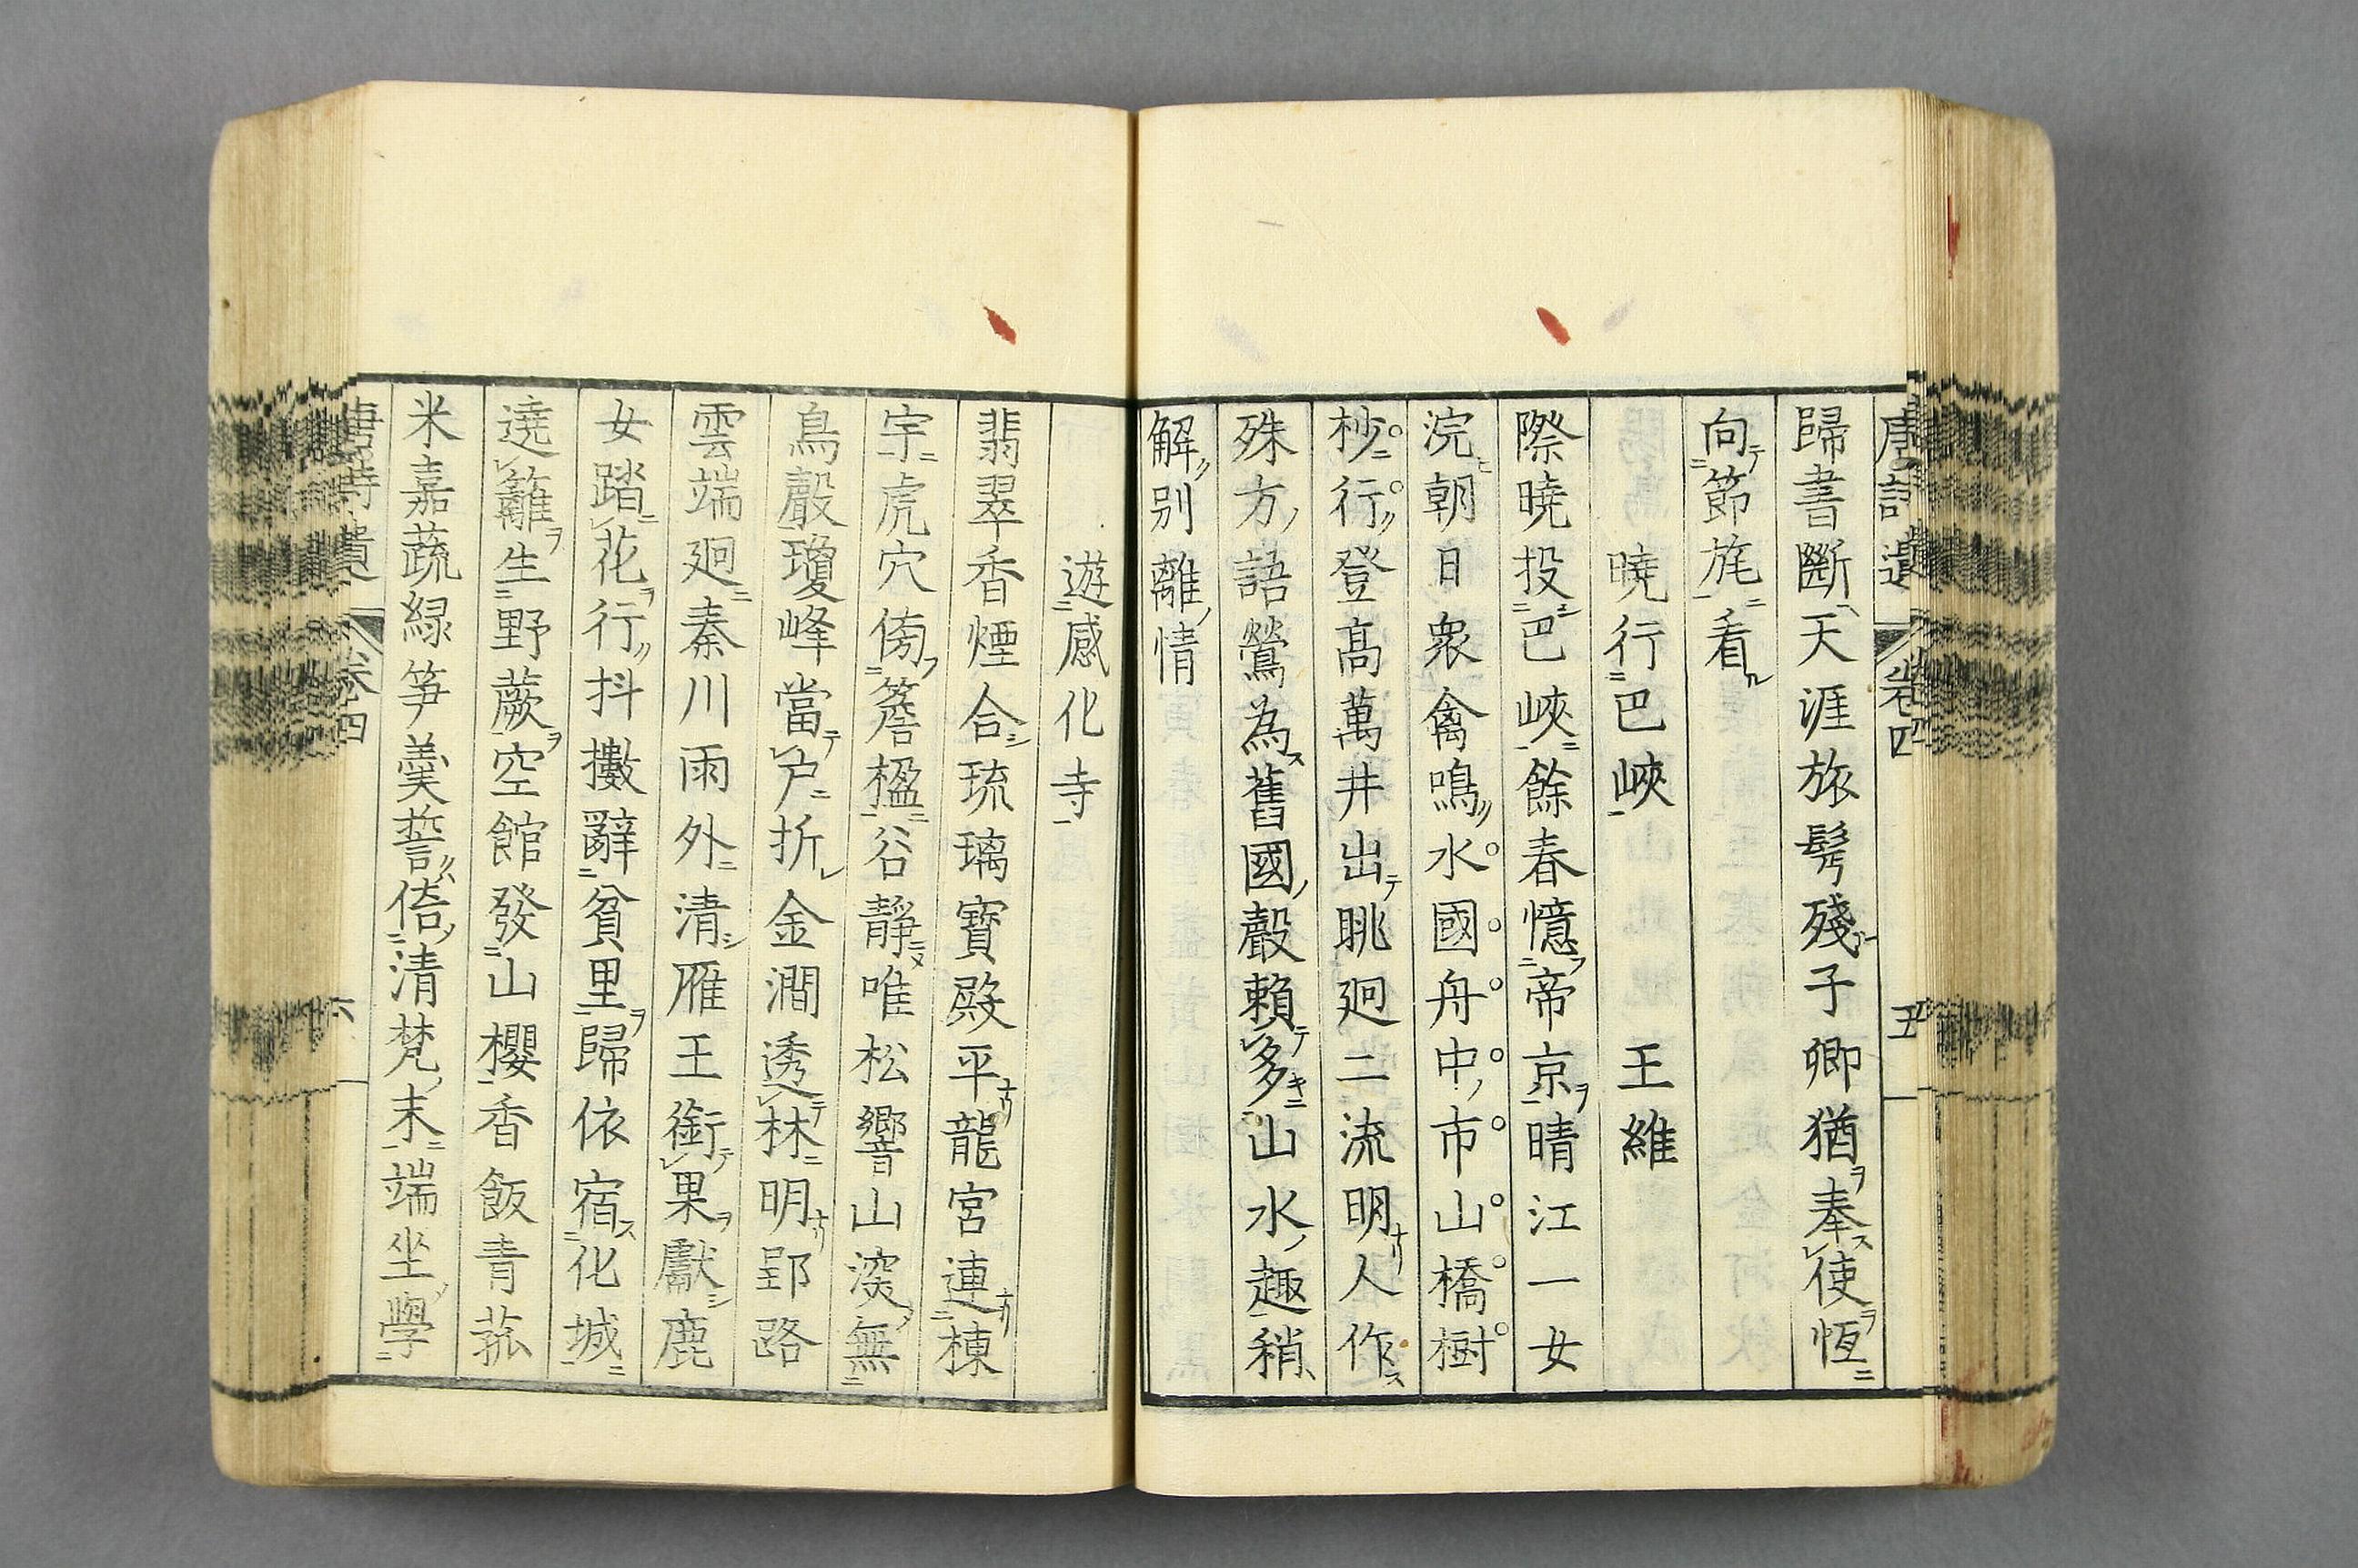 歸書斷天涯旅鬂殘子卿猶奉使恆
向節旄看
曉行巴峽　　王維
際曉投巴峽餘春憶帝京晴江一女
浣朝日衆禽鳴水國舟中市山橋樹
杪行登高萬井出眺廻二流明人作
殊方語鶯為舊國聲賴多山水趣稍
解別離情
遊感化寺
翡翠香煙合琉璃寶殿平龍宮連棟
宇虎穴傍簷楹谷靜唯松響山深無
鳥聲瓊峰當戶折金澗透林明郢路
雲端廻秦川雨外清雁王銜果獻鹿
女踏花行抖擻辭貧里歸依宿化城
遶籬生野蕨空館發山櫻香飯青菰
米嘉蔬綠笋羹誓倍清梵末端坐學
卷四
六